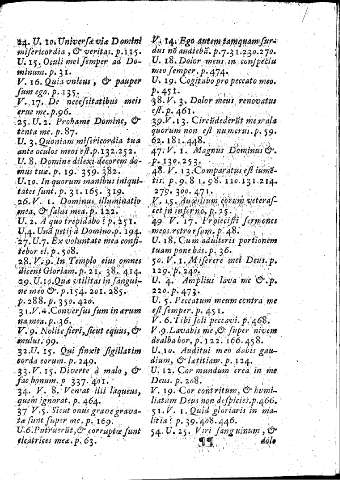 24. U. 10. Universæ viæ Domini
misericordia, & veritas. p. 135.
U. 15. Oculi mei semper ad Do-
minum. p. 31.
V. 16. Quia unicus, & pauper
sum ego. p. 135.
V. 17. De necessitatibus meis
erue me. p. 96.
25. U. 2. Proba me Domine, &
tenta me. p. 87.
U. 3. Quoniam misericordia tua
ante oculos meos est. p. 132. 252.
U. 8. Domine dilexi decorem do-
mus tuæ. p. 19. 359. 382.
U. 10. In quorum manibus iniqui-
tates sunt. p. 31. 165. 319.
26. V. 1. Dominus illuminatio
mea, & salus mea. p. 122.
U. 2. A quo trepidabo? p. 251.
U. 4. Unā petij à Domino. p. 194.
27. U. 7. Ex voluntate mea confi-
tebor ei. p. 508.
28. V. 9. In Templo eius omnes
dicent Gloriam. p. 21. 38. 414.
29. U. 10. Quæ utilitas in sangui-
ne meo &. p. 154. 201. 285.
p. 288. p. 350. 420.
31. V. 4. Conversus sum in ærum
na mea. p. 36.
V. 9. Nolite fieri, sicut equus, &
mulus. 99.
32. U. 15. Qui finxit sigillatim
corda eorum. p. 249.
33. V. 15. Diverte à malo, &
fac bonum. p. 337. 401.
34. V. 8. Veniat illi laqueus,
quem ignorat. p. 464.
37 V. 5. Sicut onus grave grava-
ta sunt super me. p. 169.
U. 6. Putruerūt, & corruptæ sunt
cicatrices meæ. p. 63.
V. 14. Ego autem tamquam sur-
dus nō audiebā. p. 7. 31. 230. 270.
U. 18. Dolor meus in conspectu
meo semper. p. 474.
U. 19. Cogitabo pro peccato meo.
p. 451.
38. V. 3. Dolor meus renovatus
est. p. 461.
39. V. 13. Circūdederūt me mala
quorum non est numerus. p. 59.
62. 181. 448.
47. V. 1. Magnus Dominus &.
p. 130. 253.
48. V. 13. Comparatus est iumē-
tis. p. 9. 81. 98. 110. 131. 214.
279. 300. 471.
V. 15. auxilium eorum veteras-
cet in inferno, p. 25.
49 V. 17. Projecisti sermones
meos retrorsum. p. 48.
U. 18. Cum adulteris portionem
tuam ponebas. p. 36.
50. V. 1. Miserere mei Deus. p.
129. p. 240.
U. 4. Amplius lava me &. p.
220. p. 473.
U. 5. Peccatum meum contra me
est semper. p. 451.
V. 6. Tibi soli peccavi. p. 468.
V. 9. Lavabis me, & super nivem
dealbabor. p. 122. 166. 458.
U. 10. Auditui meo dabis gau-
dium, & lætitiam. p. 124.
U. 12. Cor mundum crea in me
Deus. p. 208.
V. 19. Cor contritum, & humi-
liatum Deus non despicies. p. 466.
51. V. 1. Quid gloriaris in ma-
litia? p. 39. 408. 446.
54. U. 25. Viri sanguinum, &
¶¶ dolo